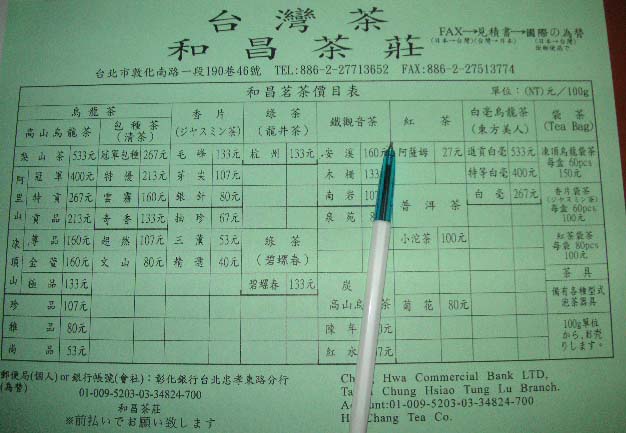 台灣茶
和昌茶莊
FAX→見積書→國際の為替
(日本→台灣) (台灣→日本) (日本→台灣)
台北市敦化南路一段190巷46號 TEL:886-2-27713652 FAX:886-2-27513774
和昌茗茶價目表 單位:(NT)元/100g
烏龍茶 香片 (ジャスミン茶) 綠茶 (龍井茶) 鐵觀音茶 紅茶 白毫烏龍茶 (東方美人) 袋茶 (Tea Bag)
高山烏龍茶 包種茶 (清茶)
梨山茶 533元 冠軍包種 267元 毛峰 133元 杭州 133元 安溪 160元 阿薩姆 27元 進貢白毫 533元 凍頂烏龍袋茶
每盒 60pcs
150元
阿里山 冠軍 400元 特優 213元 芽尖 107元 木柵 133 特等白毫 400元
特貢 267元 雲霧 160元 銀針 80元 南岩 107 普洱茶 白毫 267元 香片袋茶
(ジャスミン茶)
每盒 60pcs
100元
貢品 213元 奇香 133元 67元 泉苑
凍頂山 尊品 160元 超然 107元 三薰 53元 綠茶 (碧螺春) 小沱茶 100元 紅茶袋茶
每袋 80pcs
100元
金萱 160元 文山 80元 精選 40元
極品 133元 碧螺春 133元 炭 茶具
珍品 107元 高山烏 菊花 80元 備有各種型式
泡茶器具
雅品 80元 陳年 100g單位
から、お売
りします。
尚品 53元 紅水
郵便局(個人) or 銀行帳號(會社):彰化銀行台北忠孝東路分行
(為替) 01-009-5203-03-34824-700
和昌茶莊
※前払いでお願い致します
Hwa Commercial Bank LTD,
Chung Hsiao Tung Lu Branch.
Account:01-009-5203-03-34824-700
Chang Tea Co.